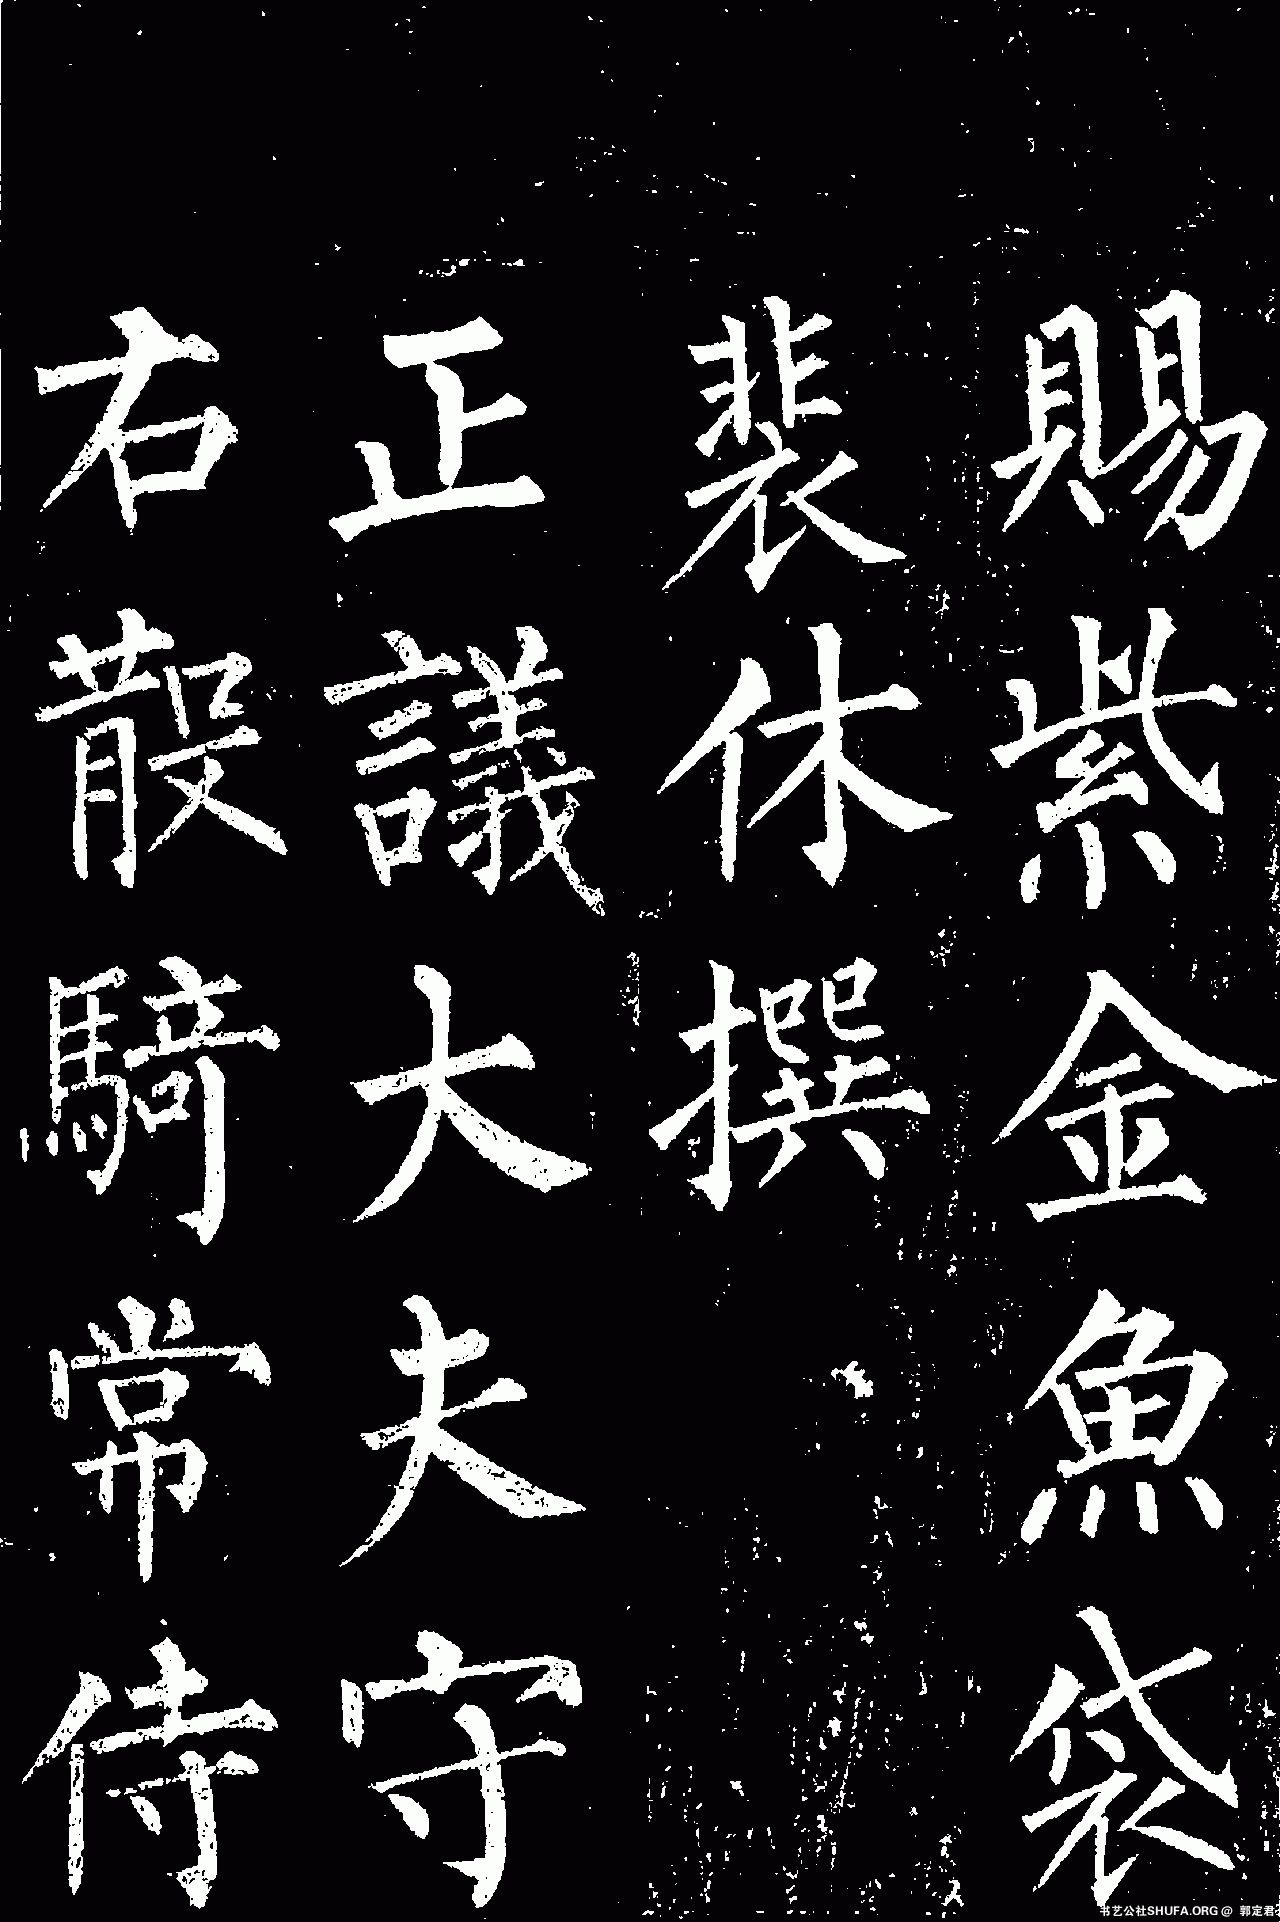 賜紫金魚袋
裴休撰
正議大夫守
右散騎常侍
书艺公社SHUFA.ORG @ 郭定君